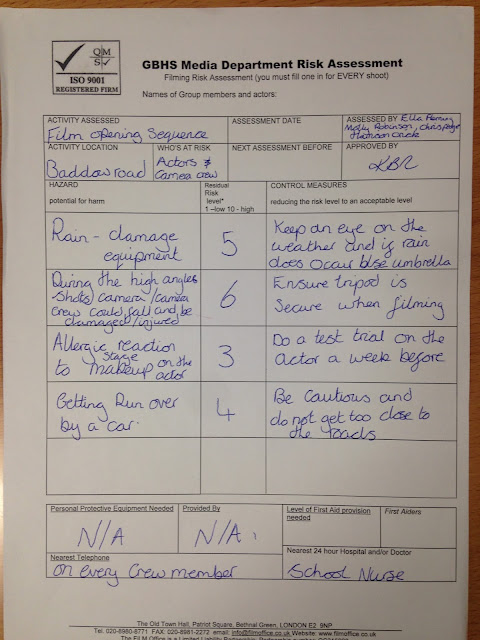 QM
S
ISO 9001
REGISTERED FIRM
GBHS Media Department Risk Assessment
Filming Risk Assessment (you must fill one in for EVERY shoot)
Names of Group members and actors:
ACTIVITY ASSESSED
Film opening Sequence
ASSESSMENT DATE
ASSESSED BY Ella Fleming
Molly Robinson, Chris
ACTIVITY LOCATION
Baddow road
WHO'S AT RISK
Actors &
Camera crew
NEXT ASSESSMENT BEFORE
APPROVED BY
KBR
HAZARD
potential for harm
Residual
Risk
level*
1 –low 10 - high
CONTROL MEASURES
reducing the risk level to an acceptable level
Rain - damage
equipment
5
Keep an eye on the
weather and if rain
does occur use umbrella
During the high angles
shots/camera/camera
crew could fall and be
damaged/injured
6
Ensure tripod is
Secure when filming
Allergic reaction
to stage makeup on the
actor
3
Do a test trial on the
actor a week before
Getting Run over
by a car.
4
Be cautious and
do not get too close to
the roads
Personal Protective Equipment Needed
N/A
Provided By
N/A
Level of First Aid provision
needed
First Aiders
Nearest Telephone
on every crew member
Nearest 24 hour Hospital and/or Doctor
School Nurse
The Old Town Hall, Patriot Square, Bethnal Green, LONDON E2 9NP
Tel. 020-8980-8771 FAX: 020-8981-2272 email: info@filmoffice.co.uk Website: www.filmoffice.co
The FILM Office is a Limited Liability Partnership